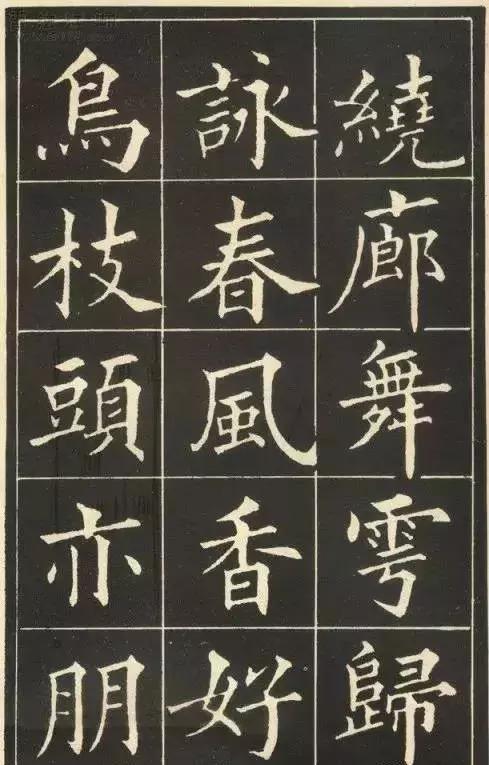 繞廊舞雩歸
詠春風香好
鳥枝頭亦朋